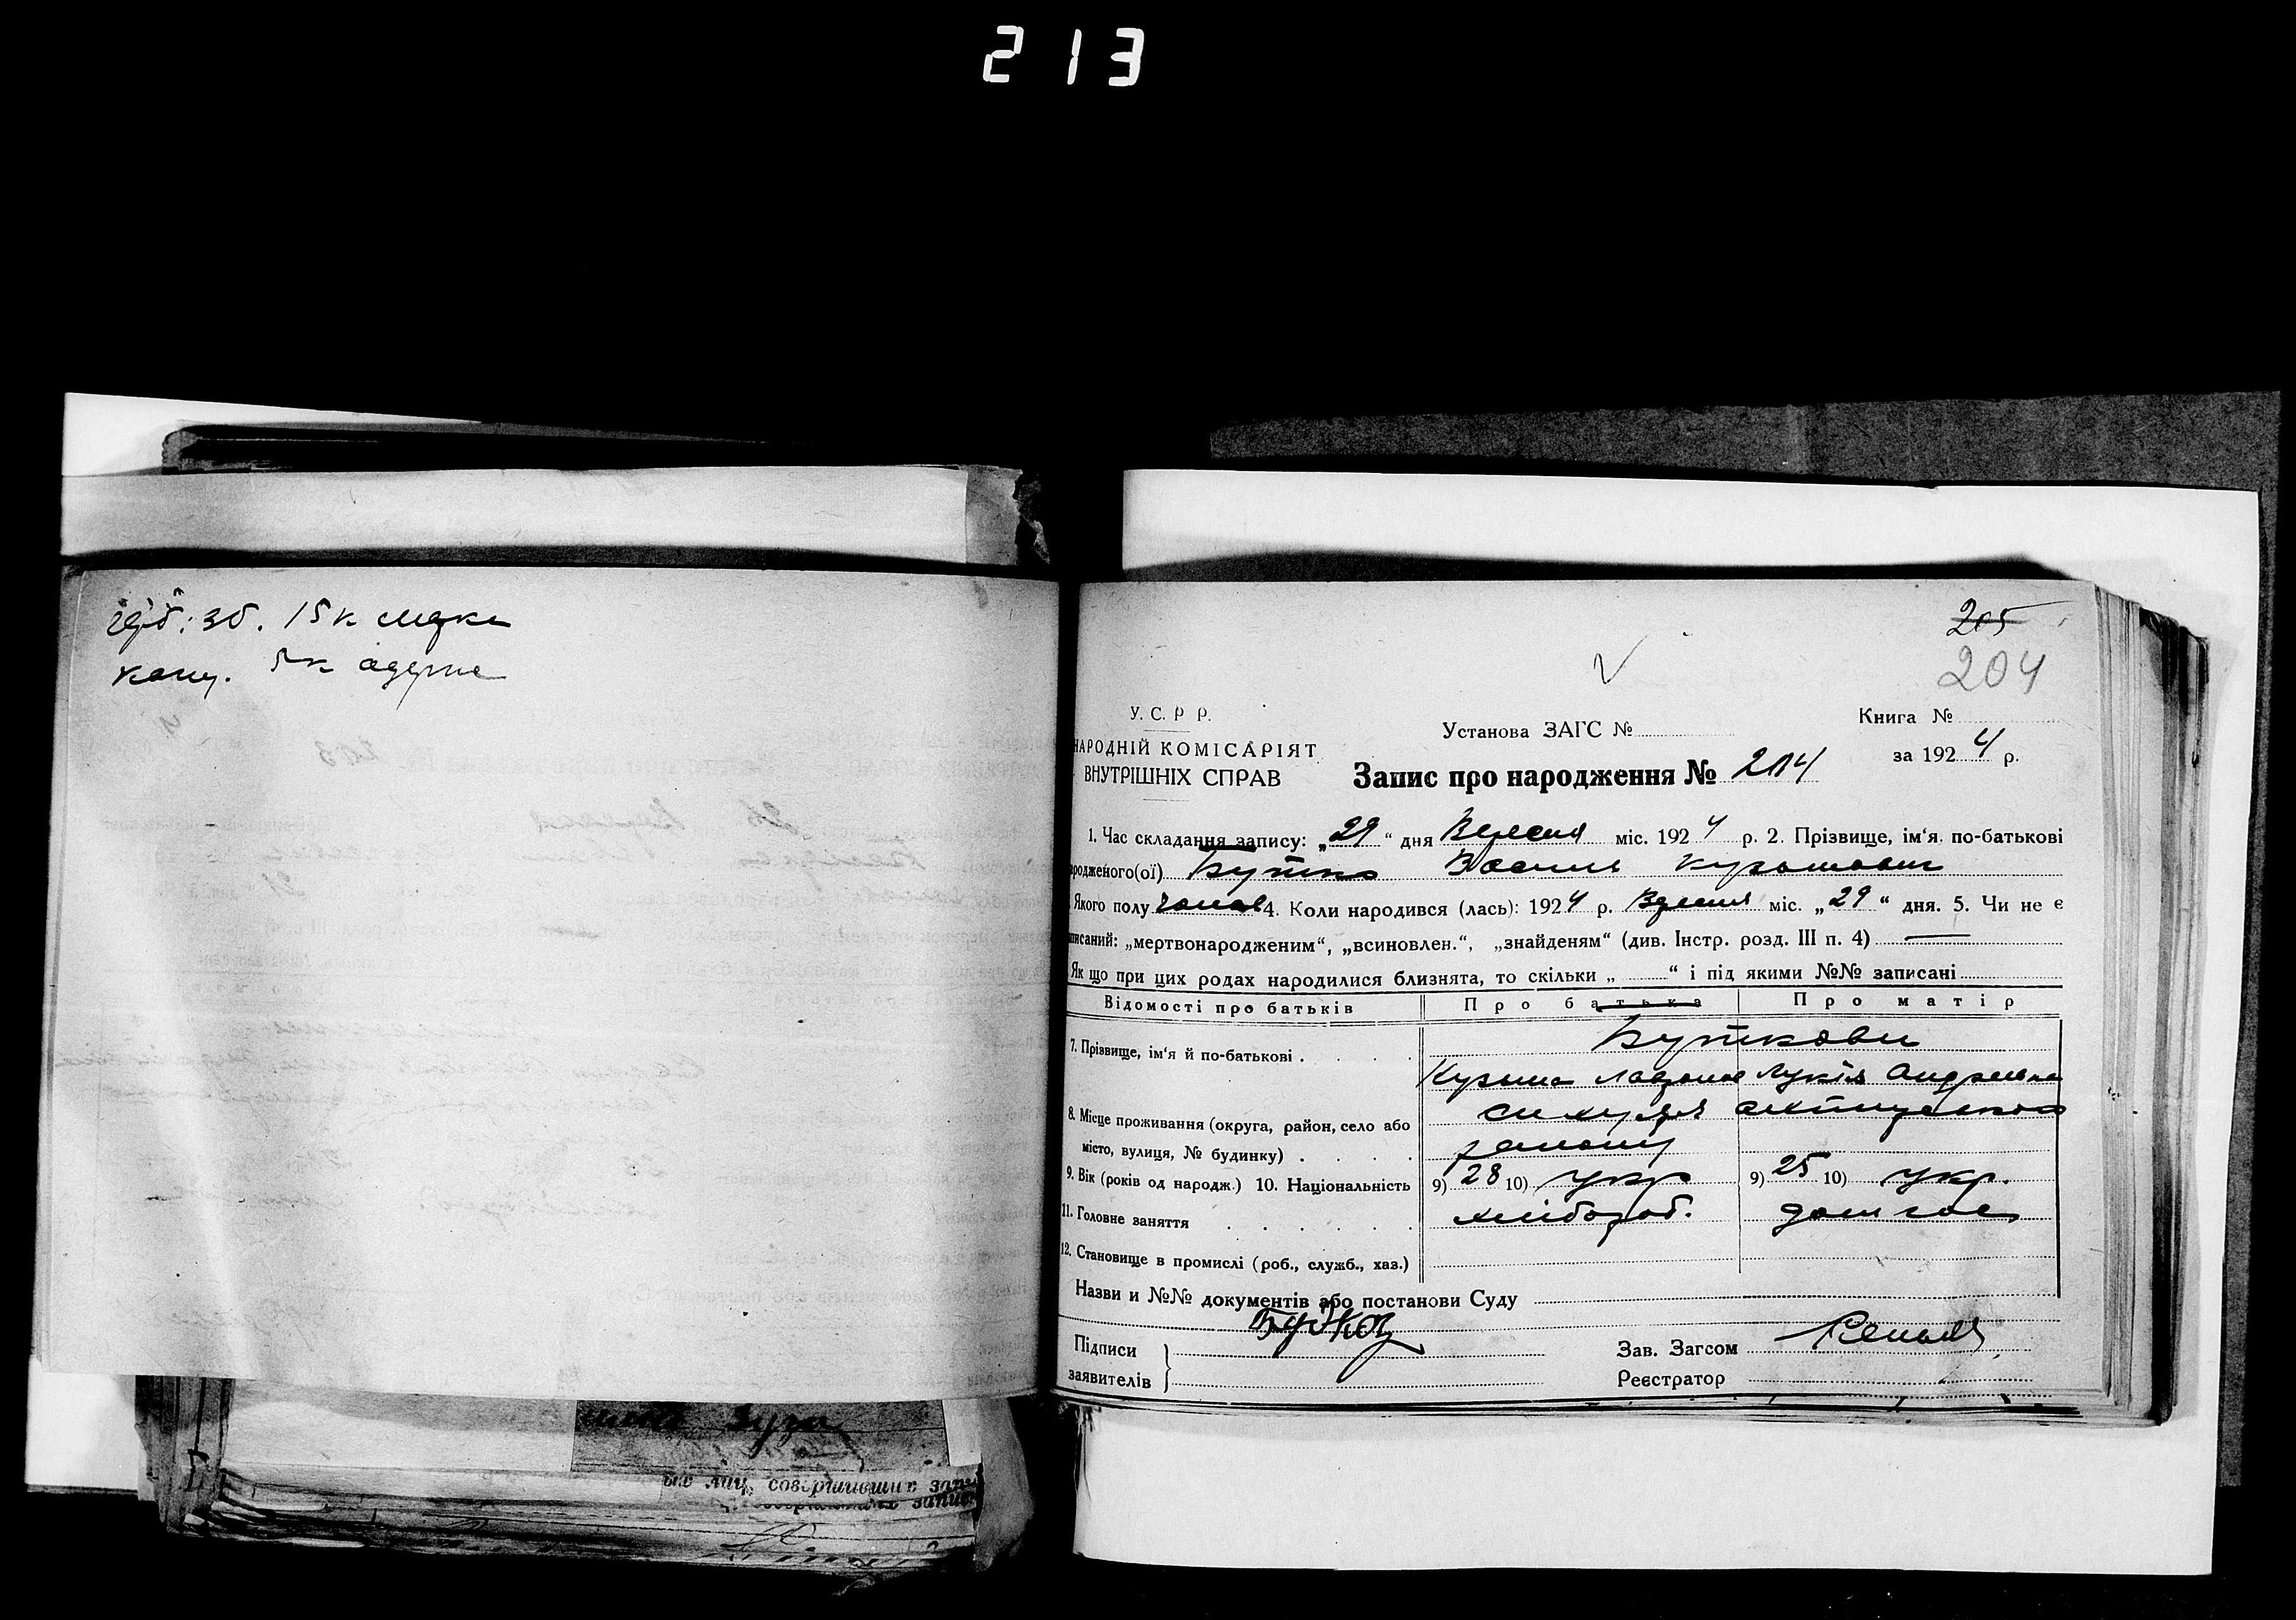 213
15к
5к
205
204
У. С. Р Р.
НАРОДНІЙ КОМІСАРІЯТ
ВНУТРІШНІХ СПРАВ
Установа ЗАГС №
Книга №
за 1924 р.
Запис про народження № 204
1. Час складання запису: „29“ дня Вересня міс. 1924 р. 2. Прізвище, ім'я по-батькові
родженого(ої) Бутко Василь Кузьмович
Якого полу чолов 4. Коли народився (лась): 1924 р. Вересня міс. „29“ дня. 5. Чи не є
писаний: „мертвонародженим“, „всиновлен.“, „знайденям“ (див. Інстр. розд. III п. 4) —
Як що при цих родах народилися близнята, то скільки „ “ і під якими №№ записані
Відомості про батьків Про батька Про матір
7. Прізвище, ім'я й по-батькові . . . . Буткови
Кузьма Лукія Андреевна
8. Місце проживання (округа, район, село або
місто, вулиця, № будинку) . . . . району
9. Вік (років од народж.) 10. Національність 9) 28 10) укр 9) 25 10) укр.
11. Головне заняття . . . . . . хлібороб. дом гос
12. Становище в промислі (роб., служб., хаз.)
Назви и №№ документів або постанови Суду
Бутко
Підписи
заявителів
Зав. Загсом
Реєстратор
ых лиц, совершивших запи